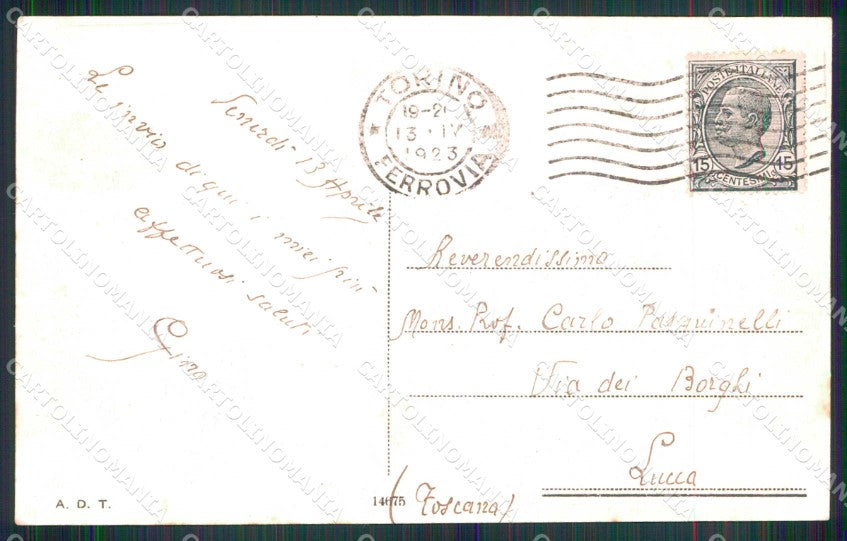 Venerdì 13 Aprile
Le invio di qui i miei più
affettuosi saluti
Gino
TORINO
19-20
13 · IV
1923
FERROVIA
POSTE ITALIANE
15 15
CENTESIMI
Reverendissimo
Mons. Prof. Carlo Pasquinelli
Via dei Borghi
Lucca
(Toscana)
A. D. T.
14675
CARTOLINOMANIA